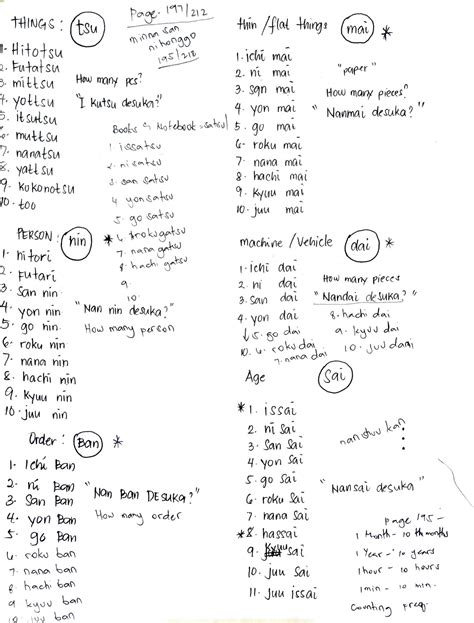 Page. 197/212
THINGS: tsu
minna san
nihonggo
195/210
1- Hitotsu
2. Futatsu
3. mittsu
4. yottsu
5. itsutsu
6. muttsu
7. nanatsu
8. yattsu
9. kokonotsu
10. too
How many pcs?
"I kutsu desuka?"
Books & Notebook = satsu
1. issatsu
2. nisatsu
3. san satsu
4. yonsatsu
5. go satsu
* 6. roku gatsu
7. nana gatsu
8. hachi gatsu
9.
10
PERSON: nin
1. hitori
2. futari
3. san nin
4. yon nin
5. go nin
6. roku nin
7. nana nin
8. hachi nin
9. Kyuu nin
10. juu nin
"Nan nin desuka?"
How many person
Order: Ban *
1- Ichi Ban
2. ni Ban
3. San Ban
4. yon Ban
5. go Ban
6. roku ban
7. nana ban
8. hachi ban
9 kyuu ban
10. juu ban
"Nan Ban DESUKA?"
How many order
thin / flat things mai *
1. ichi mai
2. ni mai
3. san mai
4. yon mai
5. go mai
6. roku mai
7. nana mai
8. hachi mai
9. Kyuu mai
10. juu mai
"paper"
How many pieces?
"Nanmai desuka?"
machine / Vehicle dai *
1. ichi dai
2. ni dai
3. san dai
4. yon dai
5. go dai
6. roku dai
7. nana dai
8. hachi dai
9. kyuu dai
10. juu daai
How many pieces
"Nandai desuka?"
Age sai
* 1. issai
2. ni sai
3. San sai
4. yon sai
5. go sai
6. roku sai
7. nana sai
* 8. hassai
9. Kyuu sai
10. juu sai
11. juu issai
"Nansai desuka"
page 195 -
1 Month - 10 months
1 Year - 10 years
1 hour - 10 hours
1 min - 10 min.
Counting freq.